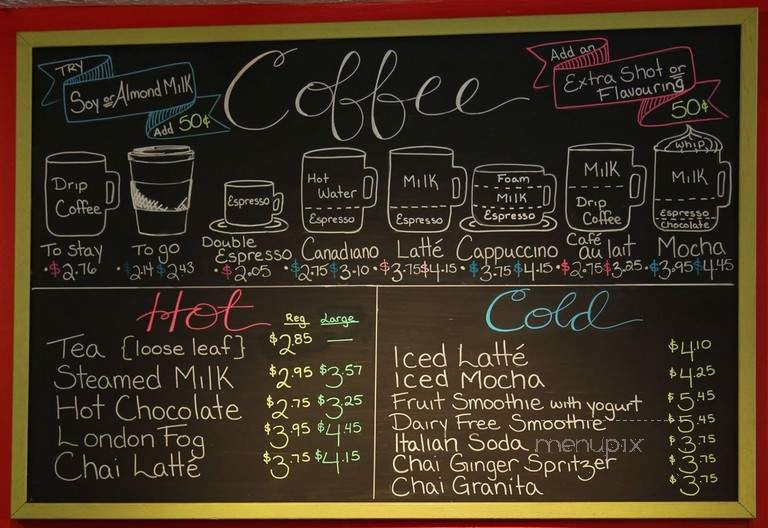 TRY
Soy or Almond Milk
Add 50¢
Coffee
Add an
Extra Shot or
Flavouring
50¢
Drip
Coffee
Espresso
Hot
Water
Espresso
Milk
Espresso
Foam
Milk
Espresso
Milk
Drip
Coffee
whip
Milk
Espresso
chocolate
To stay
• $2.76
To go
• $2.14 $2.43
Double
Espresso
• $2.05
Canadiano
• $2.75 $3.10
Latté
• $3.75 $4.15
Cappuccino
• $3.75 $4.15
Café
au lait
• $2.75 $3.25
Mocha
• $3.95 $4.45
Hot
Reg Large
Tea {loose leaf} $2.85 —
Steamed Milk $2.95 $3.57
Hot Chocolate $2.75 $3.25
London Fog $3.95 $4.45
Chai Latté $3.75 $4.15
Cold
Iced Latté $4.10
Iced Mocha $4.25
Fruit Smoothie with yogurt $5.45
Dairy Free Smoothie $5.45
Italian Soda $3.75
Chai Ginger Spritzer $3.75
Chai Granita $3.75
menupix